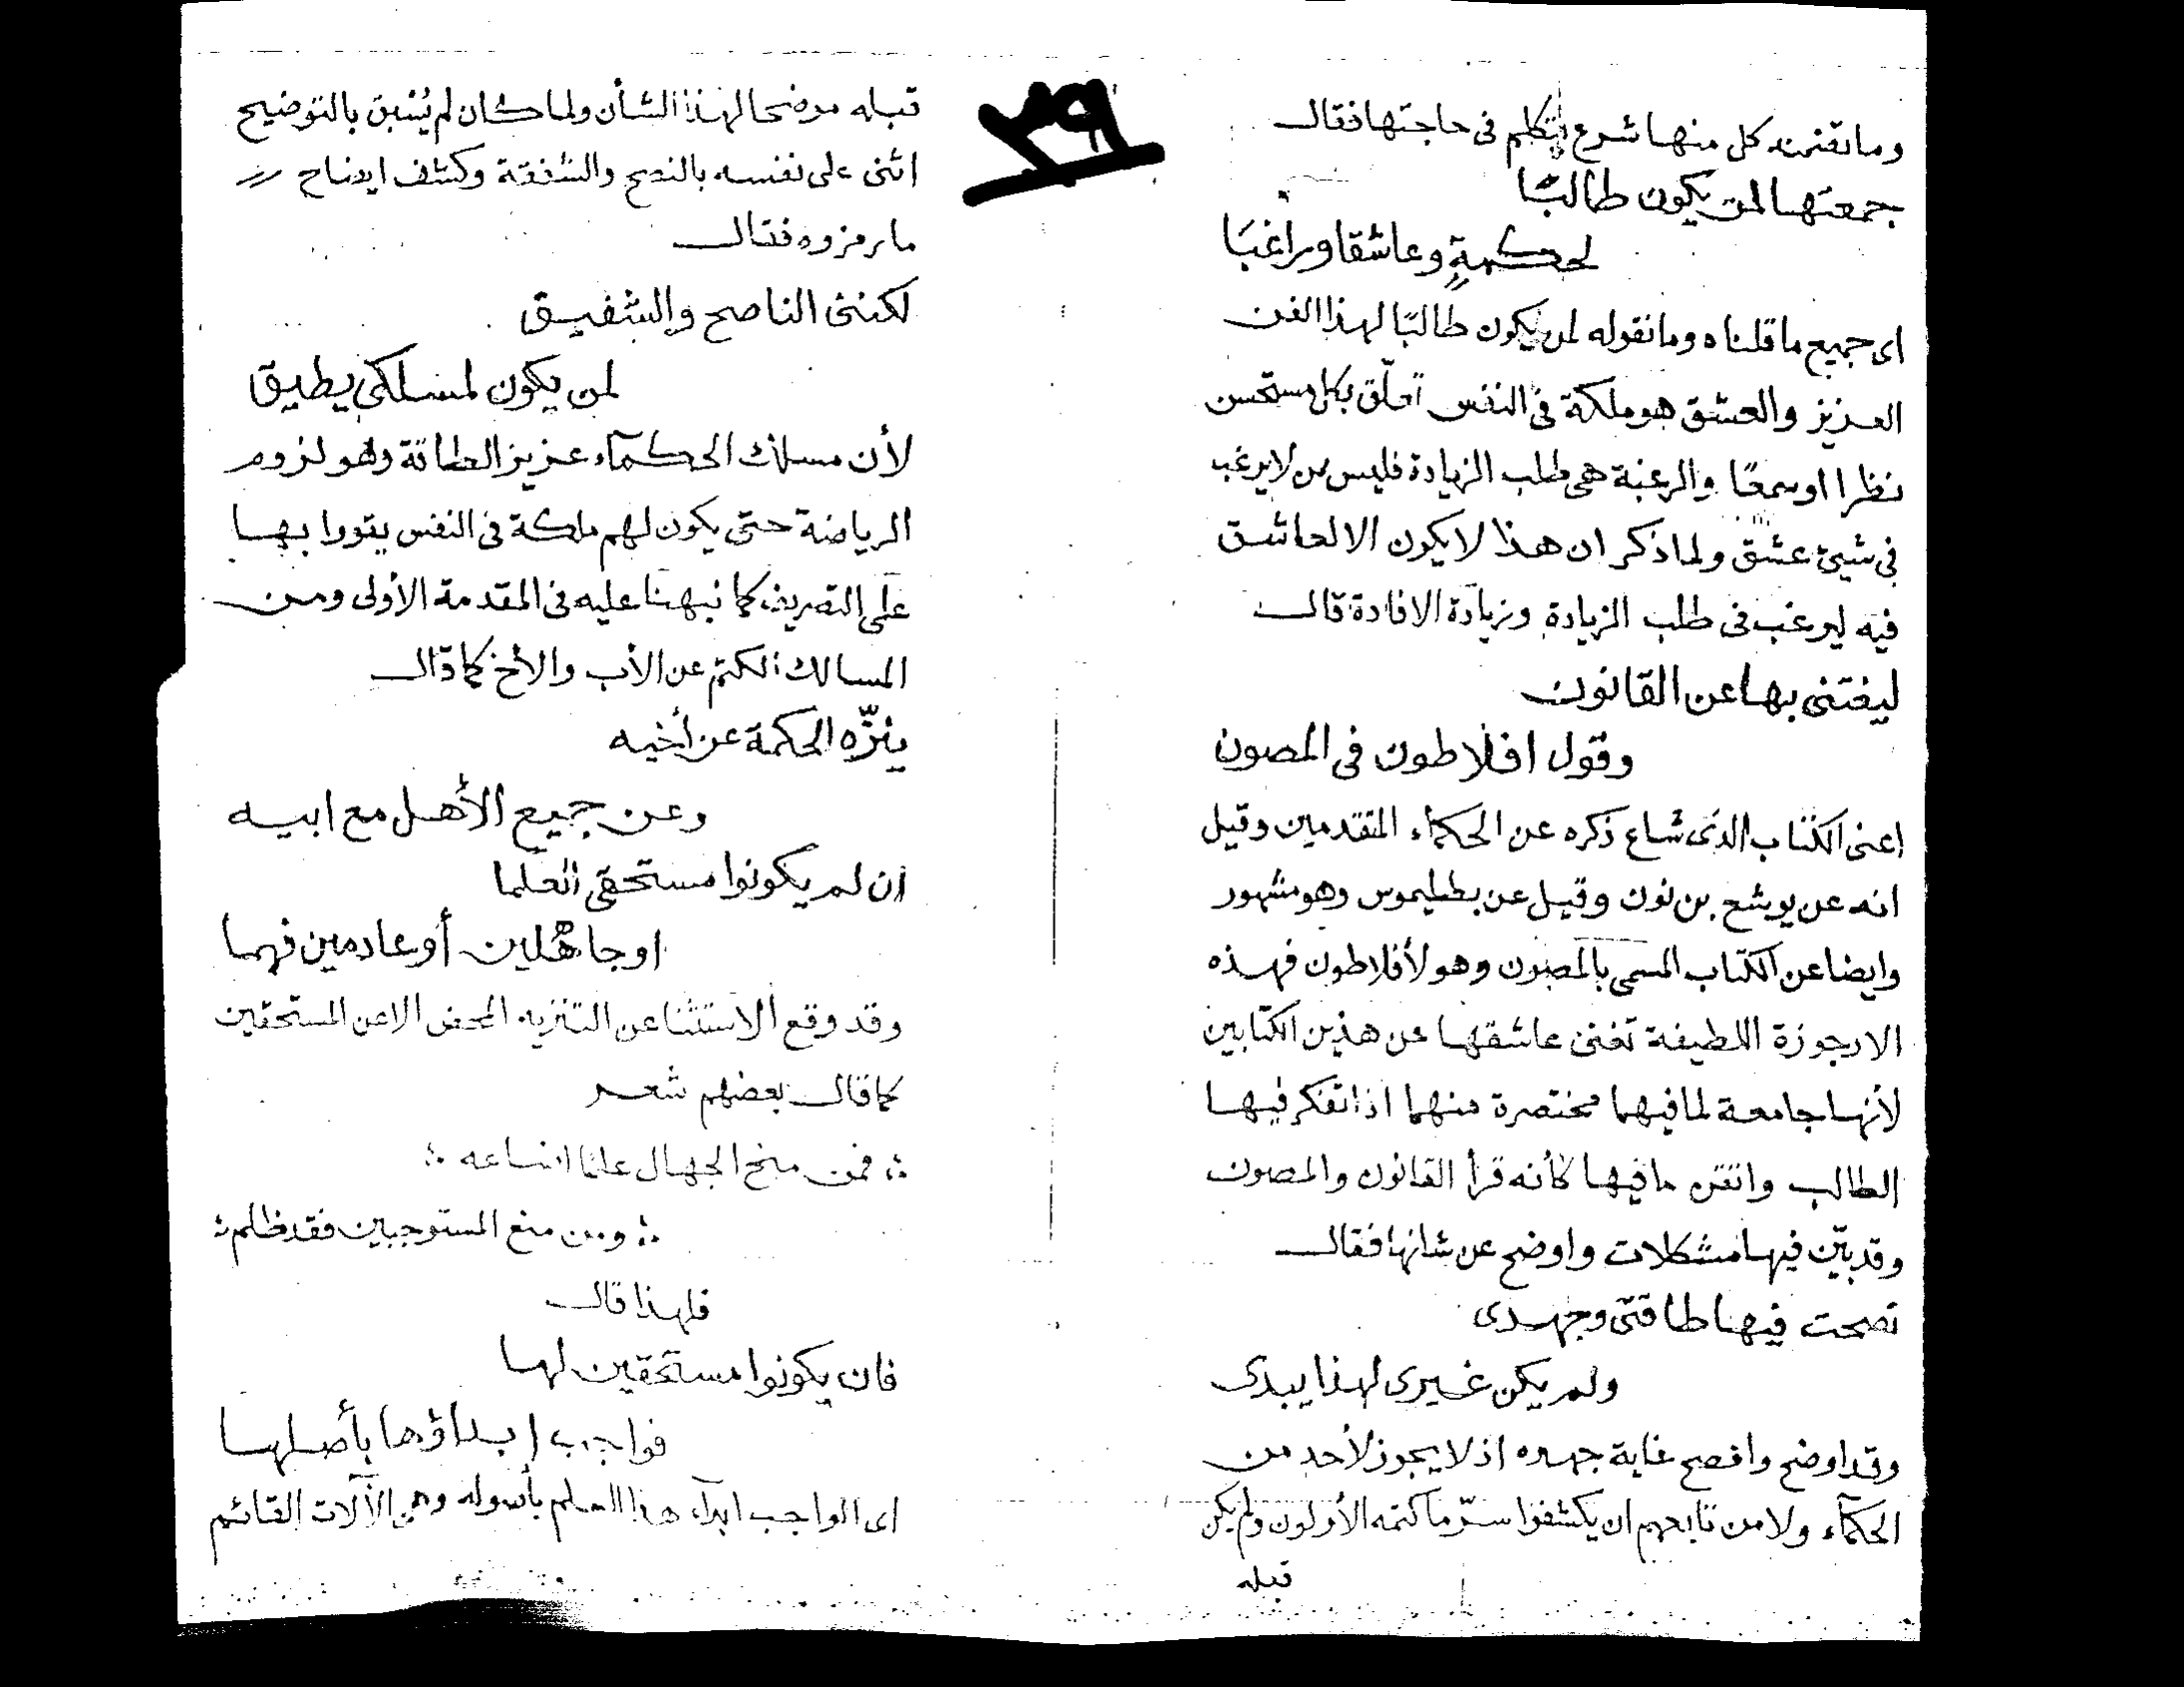 وما تقتضيه كل منها شرع يتكلم فى حاجتها فقال
جمعتها لمن يكون طالبًا
لحكمةٍ وعاشقا وراغبَا
اى جميع ما قلناه وما نقوله لمن يكون طالبًا لهذا الفن
العزيز والعشق هو ملكة فى النفس تعلّق بكل مستحسن
نظرا او سمعًا والرغبة هى طلب الزيادة فليس من لا يرغب
فى شيئ عشق ولما ذكر ان هذا لا يكون الا لعاشق
فيه ليرغب فى طلب الزيادة وزيادة الافادة قال
ليغتنى بها عن القانون
وقول افلاطون فى المصون
اعنى الكتاب الذى شاع ذكره عن الحكماء المتقدمين وقيل
انه عن يوشع بن نون وقيل عن بطليموس وهو مشهور
وايضا عن الكتاب المسمى بالمصون وهو لأفلاطون فهذه
الارجوزة اللطيفة تغنى عاشقها عن هذين الكتابين
لأنها جامعة لما فيهما مختصرة منهما اذا تفكر فيها
الطالب واتقن ما فيها كأنه قرأ القانون والمصون
وقد بيّن فيها مشكلات واوضح عن شانها فقال
نصحت فيها طاقتى وجهدى
ولم يكن غيرى لهذا يبدى
وقد اوضح وافصح غاية جهده اذ لا يجوز لأحد من
الحكمآء ولا من تابعهم ان يكشفوا سرّ ما كتمه الأولون ولم يكن
قبله
٣٩
قبله موضحا لهذا الشأن ولما كان لم يُسْبق بالتوضيح
اثنى على نفسه بالنصح والشفقة وكشف ايضاح
ما رمزوه فقال
لكننى الناصح والشفيق
لمن يكون لمسلكى يطيق
لأن مسلك الحكمآء عزيز الطاقة وهو لزوم
الرياضة حتى يكون لهم ملكة فى النفس يقووا بها
على التصريف كما نبهنا عليه فى المقدمة الأولى ومن
المسالك الكتم عن الأب والأخ كما قال
ينزّه الحكمة عن أخيه
وعن جميع الأهل مع ابيه
ان لم يكونوا مستحقى العلما
او جاهلين أو عادمين فهما
وقد وقع الاستثنا عن التنزيه المحض الا عن المستحقين
كما قال بعضهم شعر
؞ فمن منح الجهال علمًا اضاعه ؞
؞ ومن منع المستوجبين فقد ظلم ؞
فلهذا قال
فان يكونوا مستحقين لها
فواجب إبداؤها بأصلها
اى الواجب ابدآء هذا العلم بأصوله وهى الآلات القائم